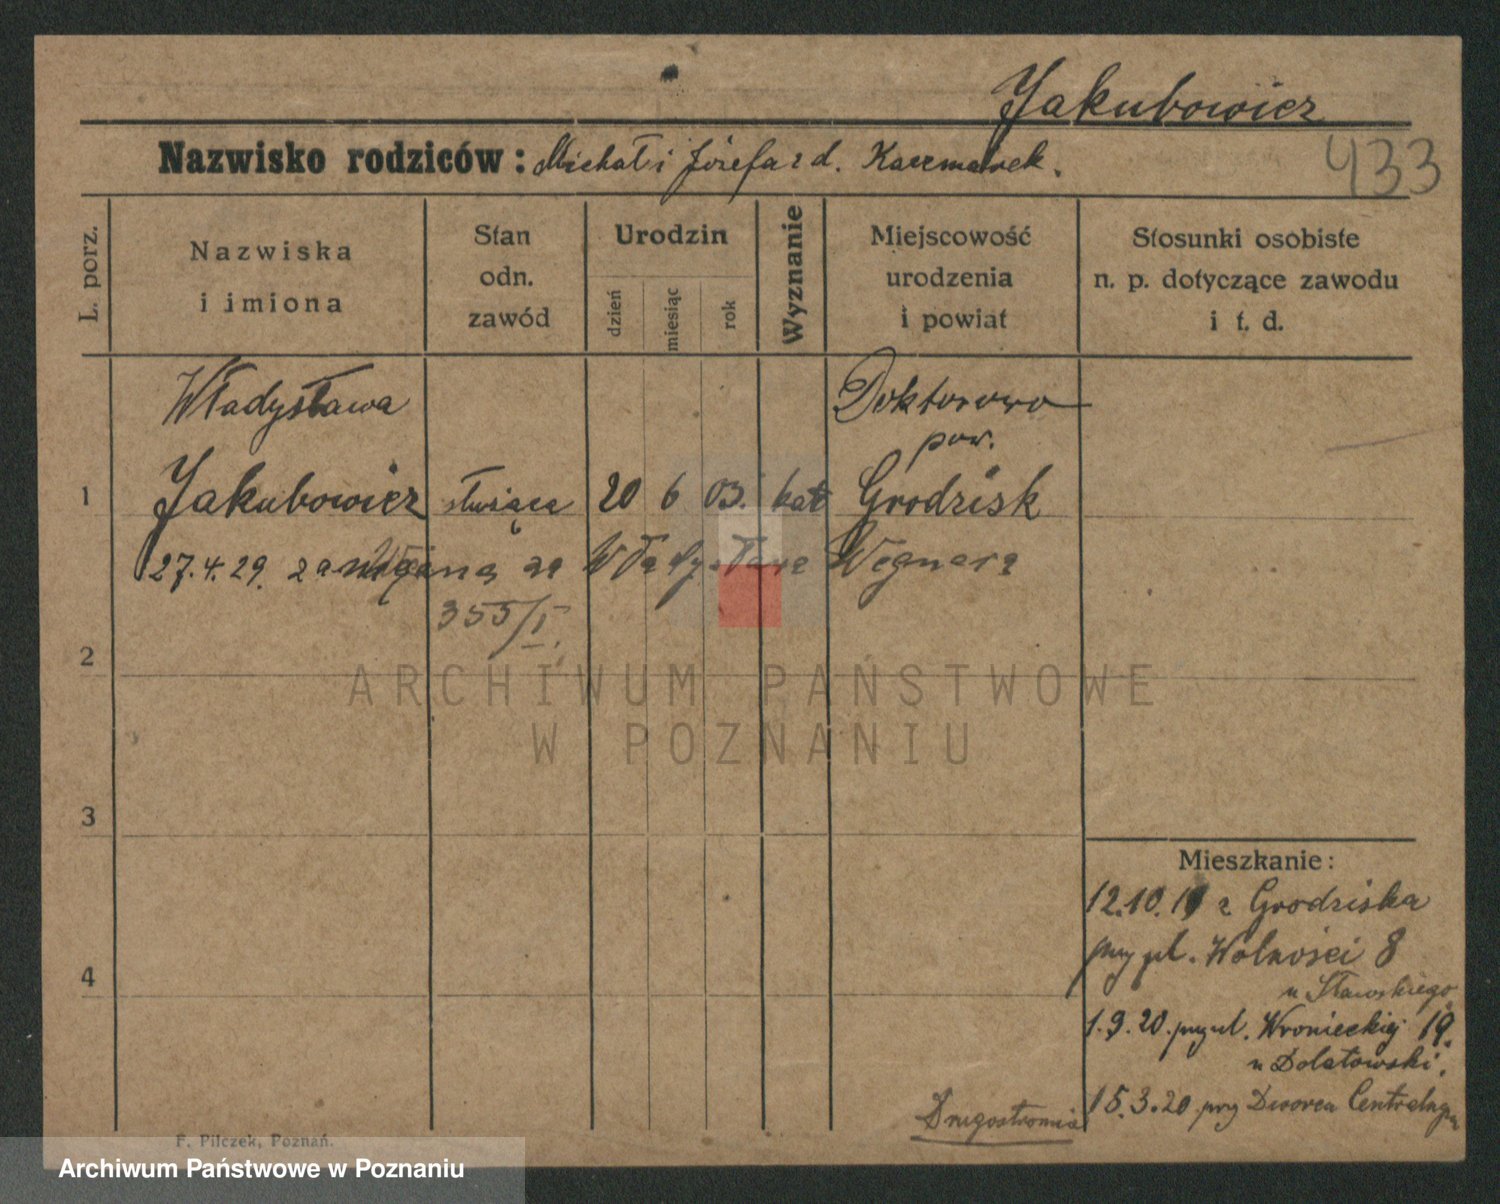 Jakubowicz
Nazwisko rodziców: Michał i Józefa z d. Kaczmarek.
433
L. porz.
Nazwiska
i imiona
Stan
odn.
zawód
Urodzin
dzień
miesiąc
rok
Wyznanie
Miejscowość
urodzenia
i powiat
Stosunki osobiste
n. p. dotyczące zawodu
i t. d.
Władysława
Doktorowo
pow.
1 Jakubowicz służąca 20 6 03. kat Grodzisk
27.4.29. za Władysława Wegnera
355/I.
2
ARCHIWUM PAŃSTWOWE
W POZNANIU
3
4
Mieszkanie:
12.10. z Grodziska
przy pl. Wolności 8
u Sławskiego
1.9.20. przy ul. Wronieckiej 19.
u Dolatowski.
15.3.20 przy Dworcu
Drugostronnie
F. Pilczek, Poznań.
Archiwum Państwowe w Poznaniu